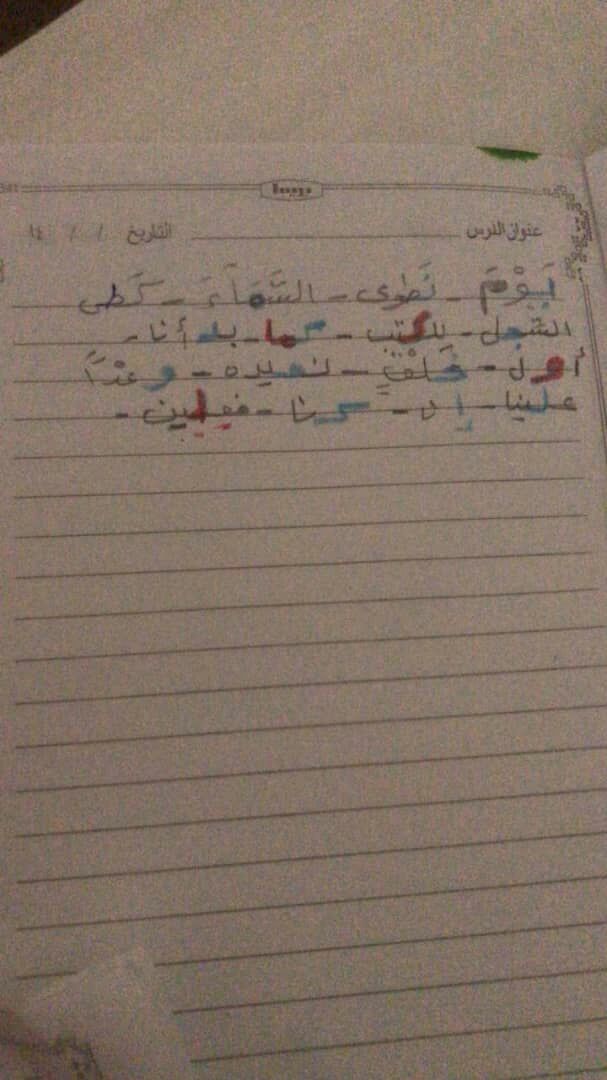 عنوان الدرس التاريخ / / ١٤
يَوْمَ - نَطْوِى - السَّمَآءَ - كَطَى
السِّجل - للكتب - كما - بدأنا -
أول - خَلْقٍ - نعيده - وعْدًا
علينا - إن - كنا - فعلين -